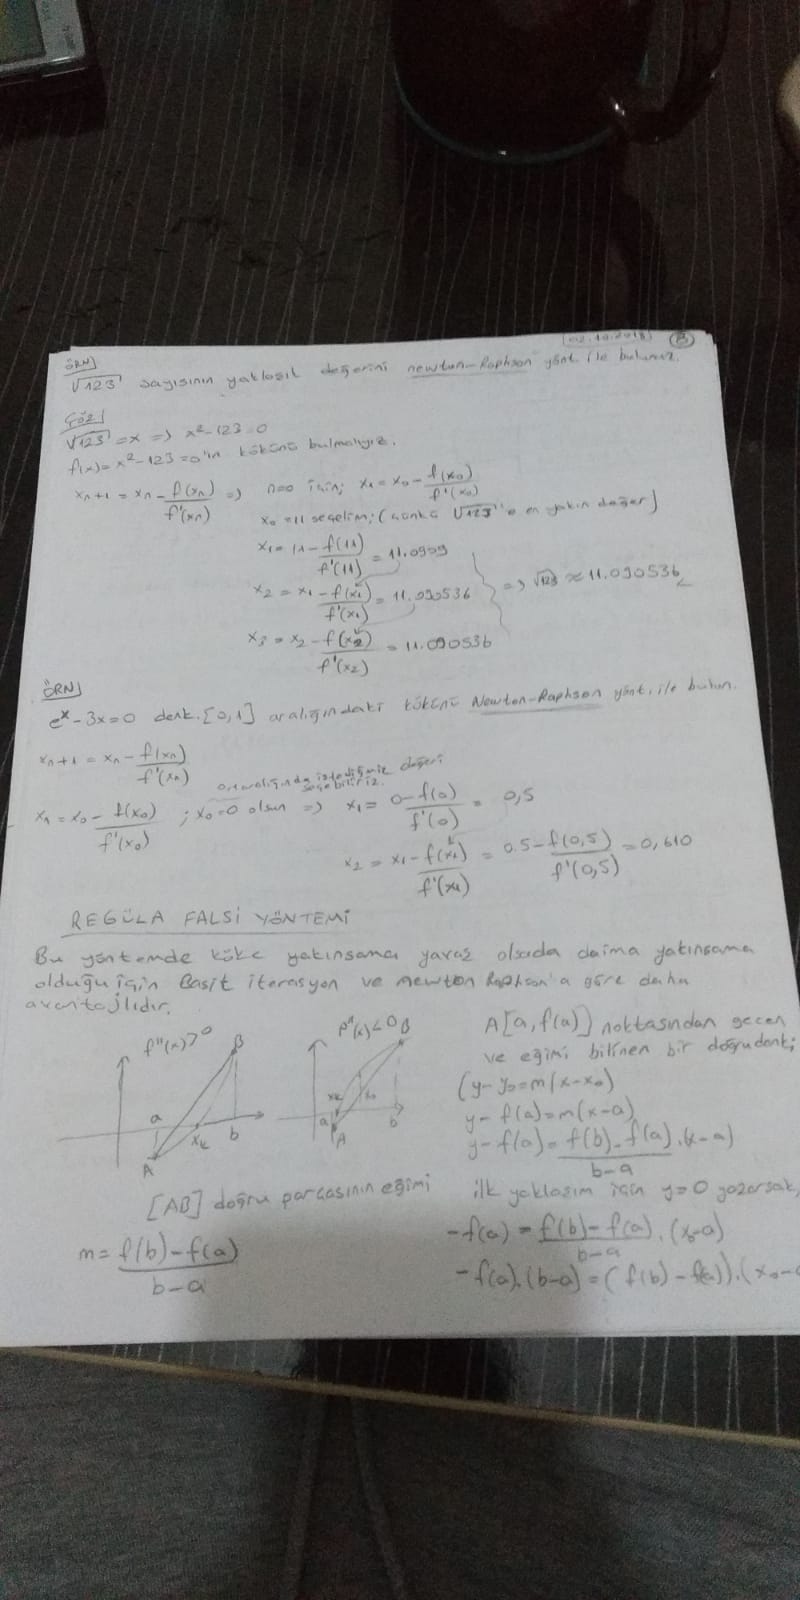 02.10.2018 B
ÖRN
√123 sayısının yaklaşık değerini newton-Raphson yönt. ile bulunuz.
Çöz
√123 = x => x²-123=0
f(x)=x²-123=0'ın kökünü bulmalıyız.
xn+1 = xn - f(xn)/f'(xn) => n=0 için; x1 = x0 - f(x0)/f'(x0)
x0=11 seçelim; (çünkü √123'e en yakın değer)
x1 = 11 - f(11)/f'(11) = 11.0909
x2 = x1 - f(x1)/f'(x1) = 11.090536 => √123 ≈ 11.090536
x3 = x2 - f(x2)/f'(x2) = 11.090536
ÖRN
e^x - 3x=0 denk. [0,1] aralığındaki kökünü Newton-Raphson yönt. ile bulun.
xn+1 = xn - f(xn)/f'(xn)
0,1 aralığında istediğimiz değeri seçebiliriz.
x1 = x0 - f(x0)/f'(x0) ; x0=0 olsun => x1 = 0 - f(0)/f'(0) = 0,5
x2 = x1 - f(x1)/f'(x1) = 0.5 - f(0,5)/f'(0,5) = 0,610
REGÜLA FALSİ YÖNTEMİ
Bu yöntemde köke yakınsama yavaş olsada daima yakınsama
olduğu için Basit iterasyon ve newton Raphson'a göre daha
avantajlıdır.
f''(x)>0
B
a
xk
b
A
f''(x)<0
B
xk
x0
a
b
A
[AB] doğru parçasının eğimi
m = f(b)-f(a)/b-a
A[a,f(a)] noktasından geçen
ve eğimi bilinen bir doğru denk;
(y-y0=m(x-x0)
y-f(a)=m(x-a)
y-f(a)= f(b)-f(a)/b-a .(x-a)
ilk yaklaşım için y=0 yazarsak,
-f(a) = f(b)-f(a)/b-a .(x0-a)
-f(a).(b-a) = (f(b)-f(a)).(x0-